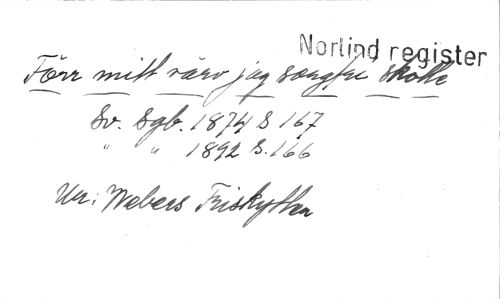 Norlind register
Förr mitt värv jag sorgfri skötte
Sv. Sgb. 1874 S 167
" " 1892 S. 166
Ur: Webers Friskytten